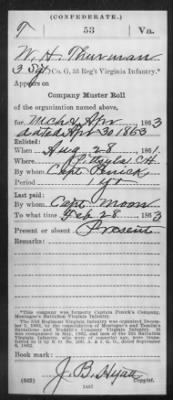 (CONFEDERATE.)
T 53 Va.
W. H. Thurman
3 Sgt, Co. G, 53 Reg't Virginia Infantry.*
Appears on
Company Muster Roll
of the organization named above,
for Mch & Apr, 1863
dated Apr 30 1863
Enlisted:
When Aug 28, 1861.
Where Pittsylva CH
By whom Capt. Penick
Period 1 yr
Last paid:
By whom Capt. Moon
To what time Feb 28, 1863
Present or absent Present
Remarks:
*This company was formerly Captain Penick's Company,
Montague's Battalion Virginia Infantry.
Book mark:
J. B. Hyatt
(642) Copyist.